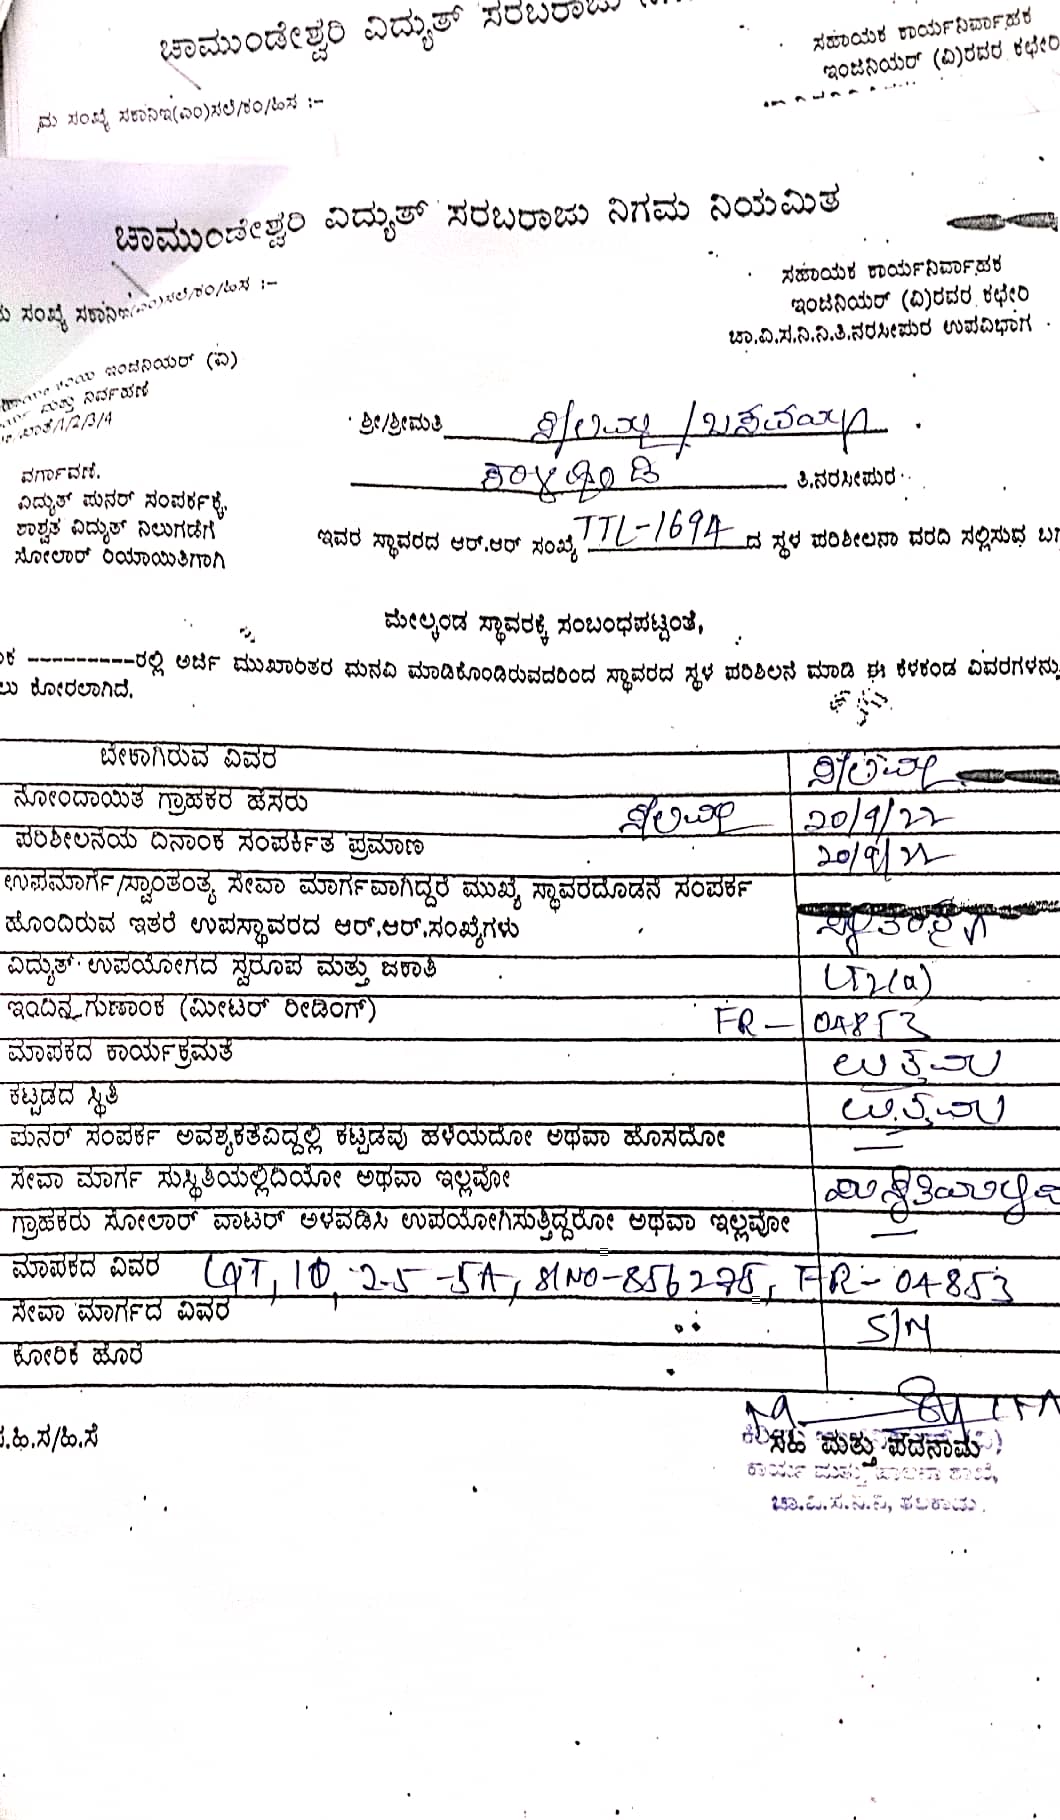 ಚಾಮುಂಡೇಶ್ವರಿ ವಿದ್ಯುತ್ ಸರಬರಾಜು
ಸಹಾಯಕ ಕಾರ್ಯನಿರ್ವಾಹಕ
ಇಂಜಿನಿಯರ್ (ವಿ)ರವರ ಕಛೇರಿ
ಸಂಖ್ಯೆ ಸಕಾನಿಇ(ಎಂ)ಸಲೆ/ಕಂ/ಹಿಸ :-
ಚಾಮುಂಡೇಶ್ವರಿ ವಿದ್ಯುತ್ ಸರಬರಾಜು ನಿಗಮ ನಿಯಮಿತ
ಸಂಖ್ಯೆ ಸಕಾನಿಇ(ಎಂ)ಸಲೆ/ಕಂ/ಹಿಸ :-
ಸಹಾಯಕ ಕಾರ್ಯನಿರ್ವಾಹಕ
ಇಂಜಿನಿಯರ್ (ವಿ)ರವರ ಕಛೇರಿ
ಚಾ.ವಿ.ಸ.ನಿ.ನಿ.ತಿ.ನರಸೀಪುರ ಉಪವಿಭಾಗ
ಇಂಜಿನಿಯರ್ (ವಿ)
ಮತ್ತು ನಿರ್ವಹಣೆ
/1/2/3/4
ಶ್ರೀ/ಶ್ರೀಮತಿ
ತಿ.ನರಸೀಪುರ
ವರ್ಗಾವಣೆ.
ವಿದ್ಯುತ್ ಪುನರ್ ಸಂಪರ್ಕಕ್ಕೆ,
ಶಾಶ್ವತ ವಿದ್ಯುತ್ ನಿಲುಗಡೆಗೆ
ಸೋಲಾರ್ ರಿಯಾಯಿತಿಗಾಗಿ
ಇವರ ಸ್ಥಾವರದ ಆರ್.ಆರ್ ಸಂಖ್ಯೆ TTL-1694 ದ ಸ್ಥಳ ಪರಿಶೀಲನಾ ವರದಿ ಸಲ್ಲಿಸುವ
ಮೇಲ್ಕಂಡ ಸ್ಥಾವರಕ್ಕೆ ಸಂಬಂಧಪಟ್ಟಂತೆ,
---------ರಲ್ಲಿ ಅರ್ಜಿ ಮುಖಾಂತರ ಮನವಿ ಮಾಡಿಕೊಂಡಿರುವದರಿಂದ ಸ್ಥಾವರದ ಸ್ಥಳ ಪರಿಶಿಲನೆ ಮಾಡಿ ಈ ಕೆಳಕಂಡ ವಿವರಗಳನ್ನು
ಕೋರಲಾಗಿದೆ.
ಬೇಕಾಗಿರುವ ವಿವರ
ನೋಂದಾಯಿತ ಗ್ರಾಹಕರ ಹೆಸರು 20/9/22
ಪರಿಶೀಲನೆಯ ದಿನಾಂಕ ಸಂಪರ್ಕಿತ ಪ್ರಮಾಣ 20/9/22
ಉಪಮಾರ್ಗ/ಸ್ವಾಂತಂತ್ರ್ಯ ಸೇವಾ ಮಾರ್ಗವಾಗಿದ್ದರೆ ಮುಖ್ಯ ಸ್ಥಾವರದೊಡನೆ ಸಂಪರ್ಕ
ಹೊಂದಿರುವ ಇತರೆ ಉಪಸ್ಥಾವರದ ಆರ್.ಆರ್.ಸಂಖ್ಯೆಗಳು
ವಿದ್ಯುತ್ ಉಪಯೋಗದ ಸ್ವರೂಪ ಮತ್ತು ಜಕಾತಿ LT2(a)
ಇಂದಿನ ಗುಣಾಂಕ (ಮೀಟರ್ ರೀಡಿಂಗ್) FR - 04853
ಮಾಪಕದ ಕಾರ್ಯಕ್ರಮತೆ ಉತ್ತಮ
ಕಟ್ಟಡದ ಸ್ಥಿತಿ ಉತ್ತಮ
ಪುನರ್ ಸಂಪರ್ಕ ಅವಶ್ಯಕತೆವಿದ್ದಲ್ಲಿ ಕಟ್ಟಡವು ಹಳೆಯದೋ ಅಥವಾ ಹೊಸದೋ —
ಸೇವಾ ಮಾರ್ಗ ಸುಸ್ಥಿತಿಯಲ್ಲಿದಿಯೋ ಅಥವಾ ಇಲ್ಲವೋ
ಗ್ರಾಹಕರು ಸೋಲಾರ್ ವಾಟರ್ ಅಳವಡಿಸಿ ಉಪಯೋಗಿಸುತ್ತಿದ್ದರೋ ಅಥವಾ ಇಲ್ಲವೋ —
ಮಾಪಕದ ವಿವರ L&T, 1Φ, 2.5-5A, SlNO-856278, FR-04853
ಸೇವಾ ಮಾರ್ಗದ ವಿವರ S/M
ಕೋರಿಕೆ ಹೊರೆ
.ಹಿ.ಸ/ಹಿ.ಸೆ
ಸಹಿ ಮತ್ತು ಪದನಾಮ